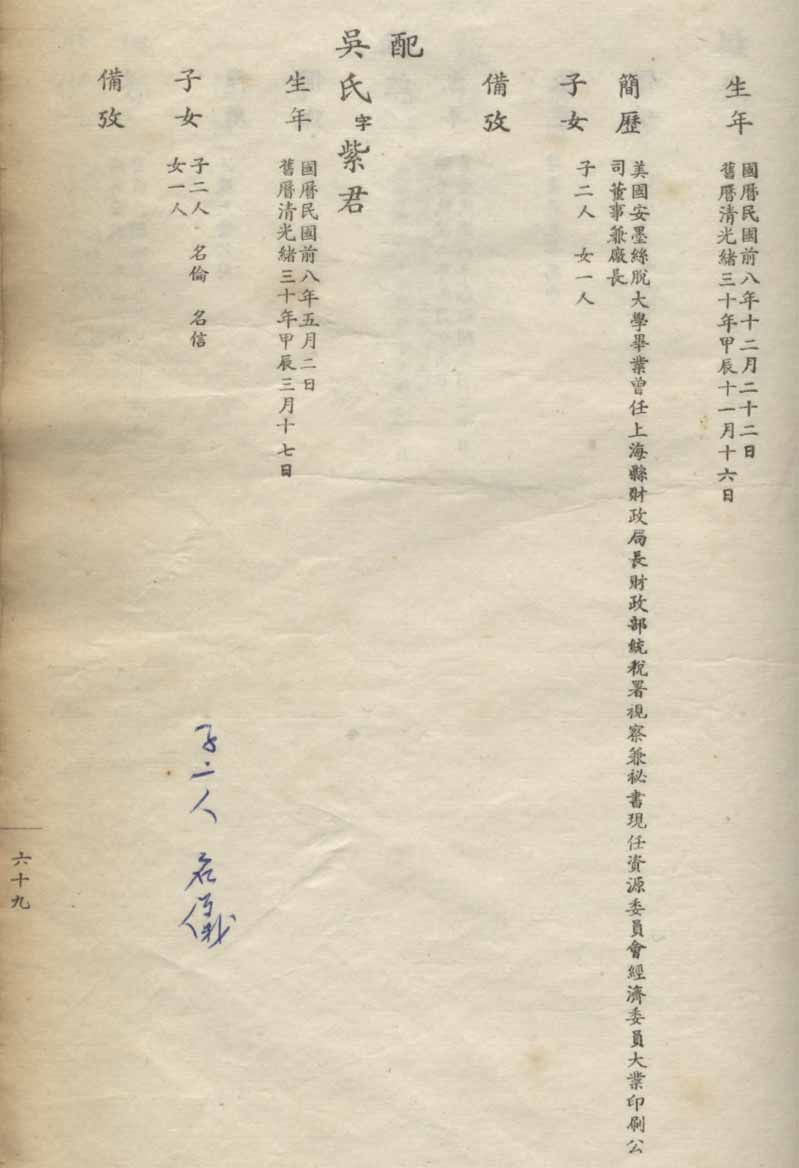 生年
國曆民國前八年十二月二十二日
舊曆清光緒三十年甲辰十一月十六日
簡歷
美國安墨絲脫大學畢業曾任上海縣財政局長財政部統稅署視察兼祕書現任資源委員會經濟委員大業印刷公
司董事兼廠長
子女
子二人 女一人
備攷
配
吳氏字紫君
生年
國曆民國前八年五月二日
舊曆清光緒三十年甲辰三月十七日
子女
子二人 名倫 名信
女一人
子二人 名儀
備攷
六十九